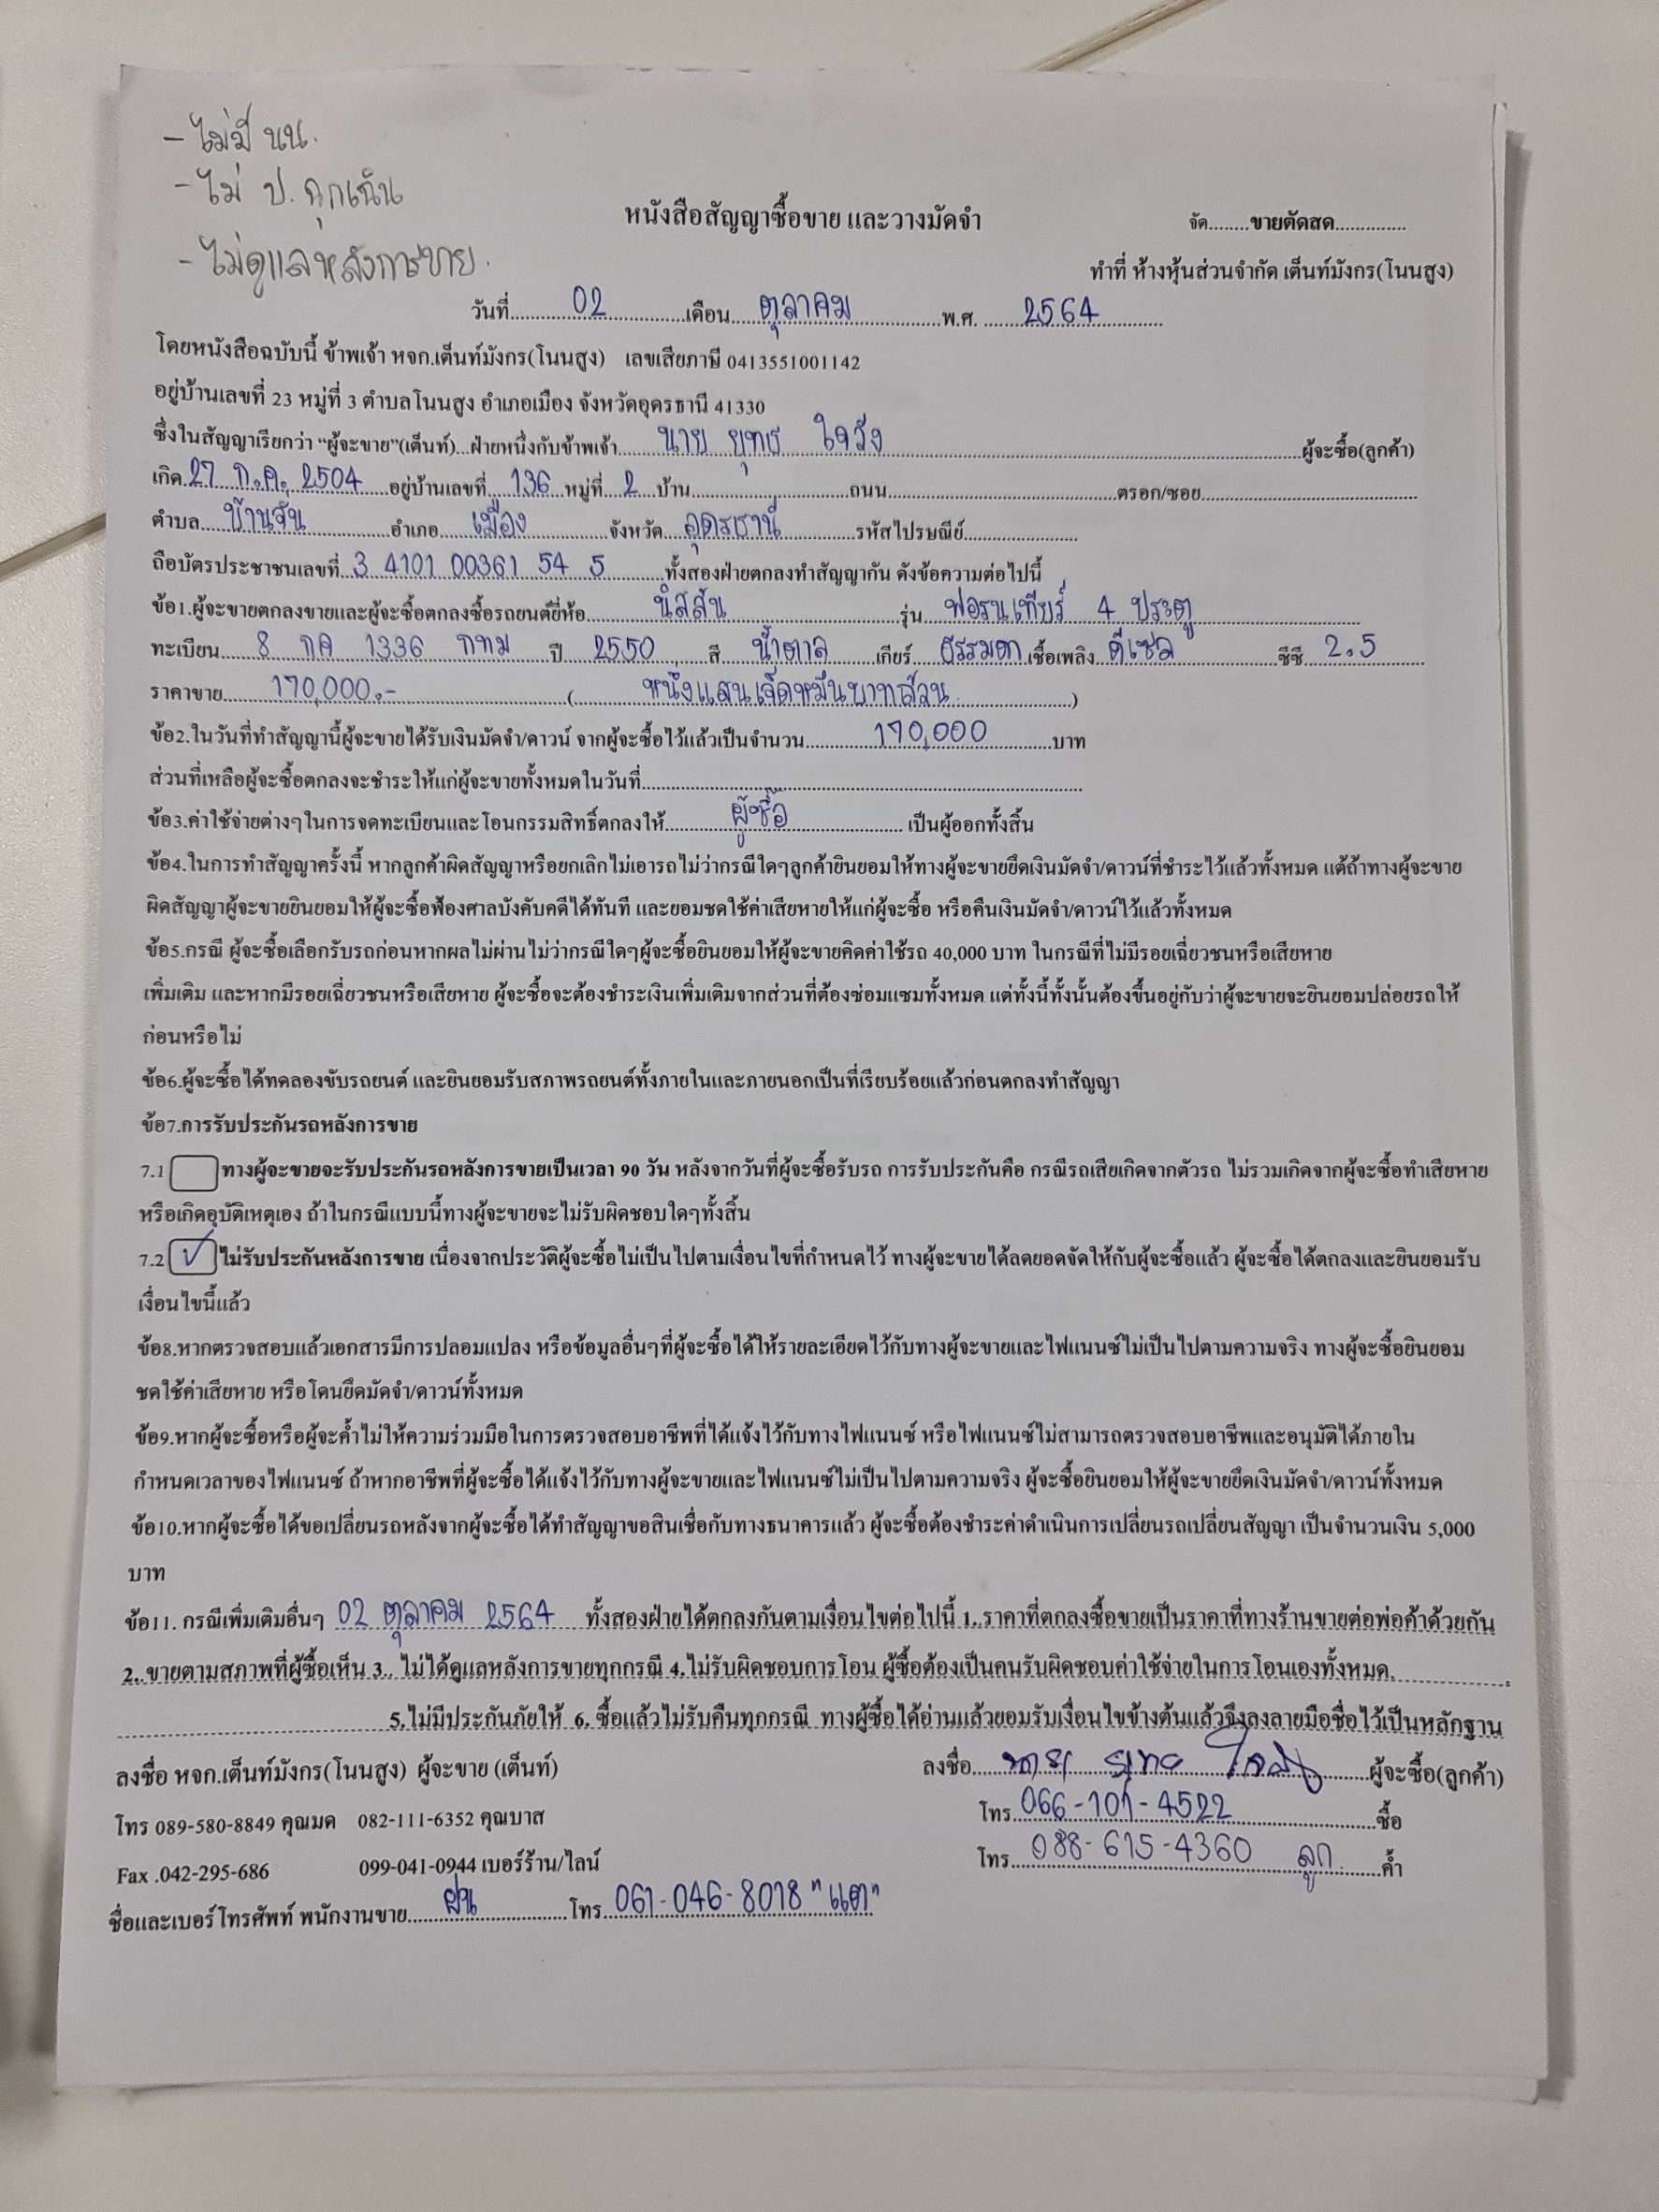 - ไม่มี นน.
- ไม่ ป. ฉุกเฉิน
- ไม่ดูแลหลังการขาย.
หนังสือสัญญาซื้อขาย และวางมัดจำ
จัด........ขายตัดสด..............
ทำที่ ห้างหุ้นส่วนจำกัด เต็นท์มังกร(โนนสูง)
วันที่ 02 เดือน ตุลาคม พ.ศ. 2564
โดยหนังสือฉบับนี้ ข้าพเจ้า หจก.เต็นท์มังกร(โนนสูง) เลขเสียภาษี 0413551001142
อยู่บ้านเลขที่ 23 หมู่ที่ 3 ตำบลโนนสูง อำเภอเมือง จังหวัดอุดรธานี 41330
ซึ่งในสัญญาเรียกว่า “ผู้จะขาย”(เต็นท์)...ฝ่ายหนึ่งกับข้าพเจ้า นาย ยุทธ ใจวัง ผู้จะซื้อ(ลูกค้า)
เกิด 27 ก.ค. 2504 อยู่บ้านเลขที่ 136 หมู่ที่ 2 บ้าน ถนน ตรอก/ซอย
ตำบล บ้านจั่น อำเภอ เมือง จังหวัด อุดรธานี รหัสไปรษณีย์
ถือบัตรประชาชนเลขที่ 3 4101 00361 54 5 ทั้งสองฝ่ายตกลงทำสัญญากัน ดังข้อความต่อไปนี้
ข้อ1.ผู้จะขายตกลงขายและผู้จะซื้อตกลงซื้อรถยนต์ยี่ห้อ นิสสัน รุ่น ฟอรนเทียร์ 4 ประตู
ทะเบียน 8 กค 1336 กทม ปี 2550 สี น้ำตาล เกียร์ ธรรมดา เชื้อเพลิง ดีเซล ซีซี 2.5
ราคาขาย 170,000.- ( หนึ่งแสนเจ็ดหมื่นบาทถ้วน )
ข้อ2.ในวันที่ทำสัญญานี้ผู้จะขายได้รับเงินมัดจำ/ดาวน์ จากผู้จะซื้อไว้แล้วเป็นจำนวน 170,000 บาท
ส่วนที่เหลือผู้จะซื้อตกลงจะชำระให้แก่ผู้จะขายทั้งหมดในวันที่
ข้อ3.ค่าใช้จ่ายต่างๆในการจดทะเบียนและโอนกรรมสิทธิ์ตกลงให้ ผู้ซื้อ เป็นผู้ออกทั้งสิ้น
ข้อ4.ในการทำสัญญาครั้งนี้ หากลูกค้าผิดสัญญาหรือยกเลิกไม่เอารถไม่ว่ากรณีใดๆลูกค้ายินยอมให้ทางผู้จะขายยึดเงินมัดจำ/ดาวน์ที่ชำระไว้แล้วทั้งหมด แต่ถ้าทางผู้จะขาย
ผิดสัญญาผู้จะขายยินยอมให้ผู้จะซื้อฟ้องศาลบังคับคดีได้ทันที และยอมชดใช้ค่าเสียหายให้แก่ผู้จะซื้อ หรือคืนเงินมัดจำ/ดาวน์ไว้แล้วทั้งหมด
ข้อ5.กรณี ผู้จะซื้อเลือกรับรถก่อนหากผลไม่ผ่านไม่ว่ากรณีใดๆผู้จะซื้อยินยอมให้ผู้จะขายคิดค่าใช้รถ 40,000 บาท ในกรณีที่ไม่มีรอยเฉี่ยวชนหรือเสียหาย
เพิ่มเติม และหากมีรอยเฉี่ยวชนหรือเสียหาย ผู้จะซื้อจะต้องชำระเงินเพิ่มเติมจากส่วนที่ต้องซ่อมแซมทั้งหมด แต่ทั้งนี้ทั้งนั้นต้องขึ้นอยู่กับว่าผู้จะขายจะยินยอมปล่อยรถให้
ก่อนหรือไม่
ข้อ6.ผู้จะซื้อได้ทดลองขับรถยนต์ และยินยอมรับสภาพรถยนต์ทั้งภายในและภายนอกเป็นที่เรียบร้อยแล้วก่อนตกลงทำสัญญา
ข้อ7.การรับประกันรถหลังการขาย
7.1 ทางผู้จะขายจะรับประกันรถหลังการขายเป็นเวลา 90 วัน หลังจากวันที่ผู้จะซื้อรับรถ การรับประกันคือ กรณีรถเสียเกิดจากตัวรถ ไม่รวมเกิดจากผู้จะซื้อทำเสียหาย
หรือเกิดอุบัติเหตุเอง ถ้าในกรณีแบบนี้ทางผู้จะขายจะไม่รับผิดชอบใดๆทั้งสิ้น
7.2 ✓ ไม่รับประกันหลังการขาย เนื่องจากประวัติผู้จะซื้อไม่เป็นไปตามเงื่อนไขที่กำหนดไว้ ทางผู้จะขายได้ลดยอดจัดให้กับผู้จะซื้อแล้ว ผู้จะซื้อได้ตกลงและยินยอมรับ
เงื่อนไขนี้แล้ว
ข้อ8.หากตรวจสอบแล้วเอกสารมีการปลอมแปลง หรือข้อมูลอื่นๆที่ผู้จะซื้อได้ให้รายละเอียดไว้กับทางผู้จะขายและไฟแนนซ์ไม่เป็นไปตามความจริง ทางผู้จะซื้อยินยอม
ชดใช้ค่าเสียหาย หรือโดนยึดมัดจำ/ดาวน์ทั้งหมด
ข้อ9.หากผู้จะซื้อหรือผู้จะค้ำไม่ให้ความร่วมมือในการตรวจสอบอาชีพที่ได้แจ้งไว้กับทางไฟแนนซ์ หรือไฟแนนซ์ไม่สามารถตรวจสอบอาชีพและอนุมัติได้ภายใน
กำหนดเวลาของไฟแนนซ์ ถ้าหากอาชีพที่ผู้จะซื้อได้แจ้งไว้กับทางผู้จะขายและไฟแนนซ์ไม่เป็นไปตามความจริง ผู้จะซื้อยินยอมให้ผู้จะขายยึดเงินมัดจำ/ดาวน์ทั้งหมด
ข้อ10.หากผู้จะซื้อได้ขอเปลี่ยนรถหลังจากผู้จะซื้อได้ทำสัญญาขอสินเชื่อกับทางธนาคารแล้ว ผู้จะซื้อต้องชำระค่าดำเนินการเปลี่ยนรถเปลี่ยนสัญญา เป็นจำนวนเงิน 5,000
บาท
ข้อ11. กรณีเพิ่มเติมอื่นๆ 02 ตุลาคม 2564 ทั้งสองฝ่ายได้ตกลงกันตามเงื่อนไขต่อไปนี้ 1. ราคาที่ตกลงซื้อขายเป็นราคาที่ทางร้านขายต่อพ่อค้าด้วยกัน
2. ขายตามสภาพที่ผู้ซื้อเห็น 3. ไม่ได้ดูแลหลังการขายทุกกรณี 4.ไม่รับผิดชอบการโอน ผู้ซื้อต้องเป็นคนรับผิดชอบค่าใช้จ่ายในการโอนเองทั้งหมด
5.ไม่มีประกันภัยให้ 6. ซื้อแล้วไม่รับคืนทุกกรณี ทางผู้ซื้อได้อ่านแล้วยอมรับเงื่อนไขข้างต้นแล้วจึงลงลายมือชื่อไว้เป็นหลักฐาน
ลงชื่อ หจก.เต็นท์มังกร(โนนสูง) ผู้จะขาย (เต็นท์)
ลงชื่อ นาย ยุทธ ใจวัง ผู้จะซื้อ(ลูกค้า)
โทร 089-580-8849 คุณมด 082-111-6352 คุณบาส
โทร 066-101-4522 ซื้อ
Fax .042-295-686 099-041-0944 เบอร์ร้าน/ไลน์
โทร 088-615-4360 ลูก ค้ำ
ชื่อและเบอร์โทรศัพท์ พนักงานขาย ฝน โทร 061-046-8018 "แต"